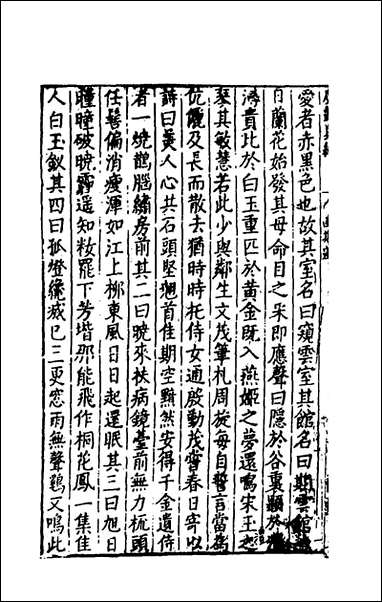 愛者赤黑色也故其室名曰窺雲室其館名曰期雲館
日蘭花始發其母命目之采即應聲曰隱於谷裏顯於
潯貴比於白玉重匹於黃金既入燕姬之夢還鳴宋玉之
琴其敏慧若此少與鄰生文茂筆札周旋每自誓言當為
伉儷及長而散去猶時時托侍女通殷勤茂嘗春日寄以
詩曰美人心共石頭堅翹首佳期空黯然安得千金遺侍
者一燒鵲腦繡房前其二曰曉來扶病鏡臺前無力梳頭
任髻偏消瘦渾如江上柳東風日日起還眠其三曰旭日
瞳瞳破曉霾遥知妝罷下芳堦那能飛作桐花鳳一集佳
人白玉釵其四曰孤燈纔滅已三更窓雨無聲鷄又鳴此